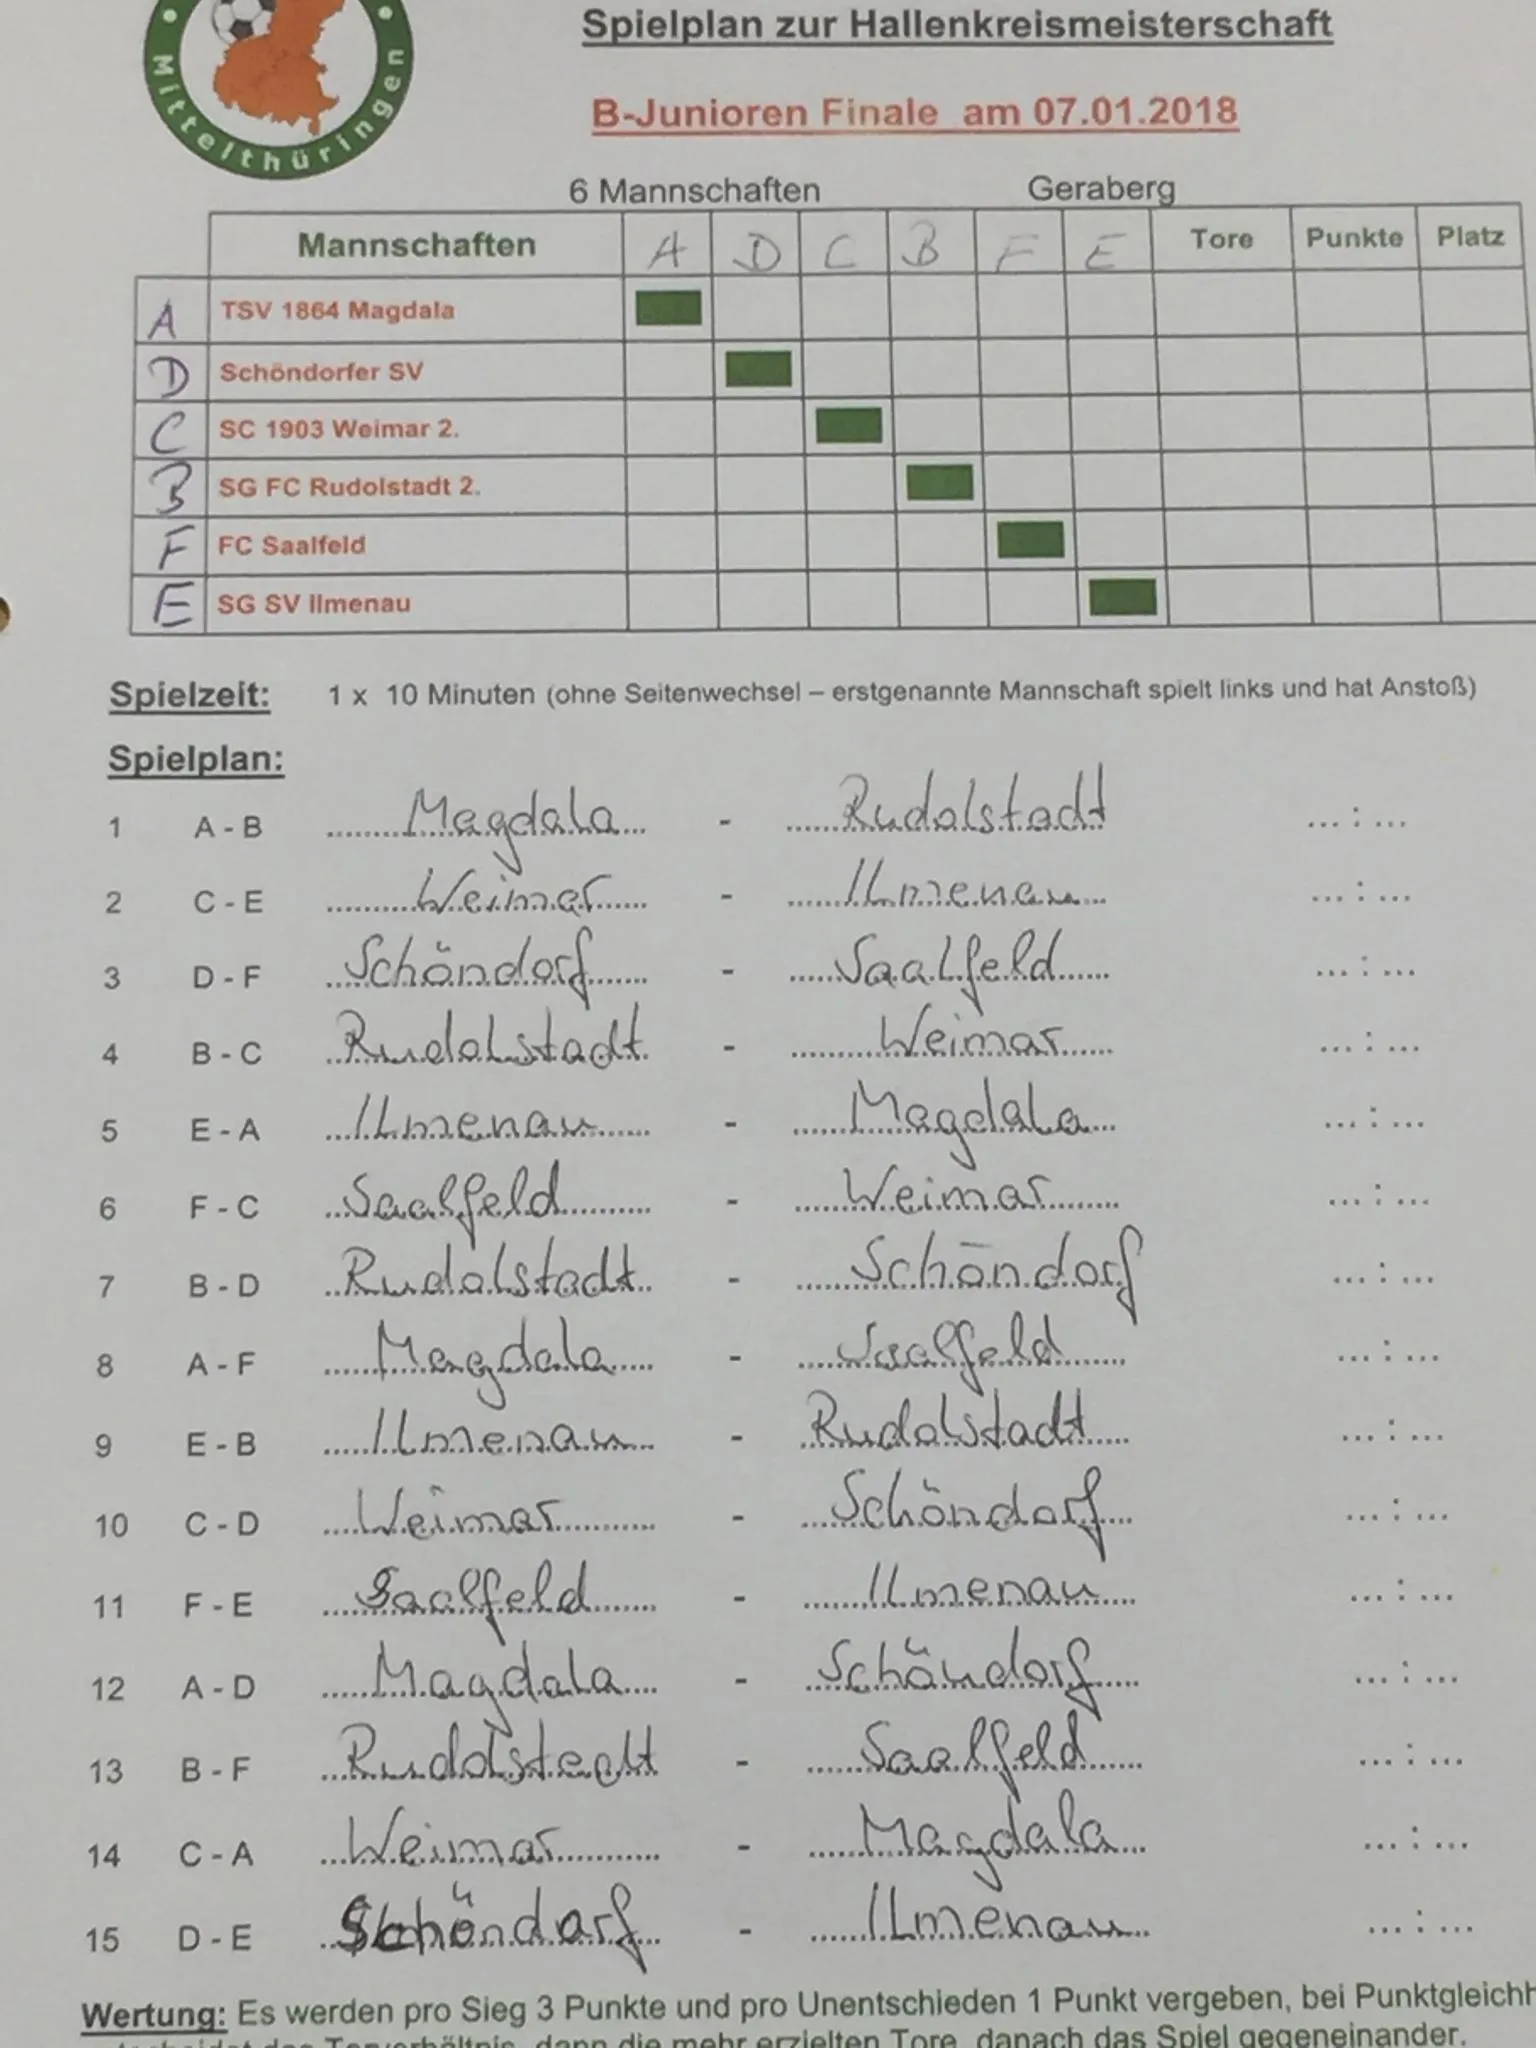 Mittelthüringen
Spielplan zur Hallenkreismeisterschaft
B-Junioren Finale am 07.01.2018
6 Mannschaften Geraberg
Mannschaften A D C B F E Tore Punkte Platz
A TSV 1864 Magdala
D Schöndorfer SV
C SC 1903 Weimar 2.
B SG FC Rudolstadt 2.
F FC Saalfeld
E SG SV Ilmenau
Spielzeit: 1 x 10 Minuten (ohne Seitenwechsel – erstgenannte Mannschaft spielt links und hat Anstoß)
Spielplan:
1 A - B Magdala - Rudolstadt ... : ...
2 C - E Weimar - Ilmenau ... : ...
3 D - F Schöndorf - Saalfeld ... : ...
4 B - C Rudolstadt - Weimar ... : ...
5 E - A Ilmenau - Magdala ... : ...
6 F - C Saalfeld - Weimar ... : ...
7 B - D Rudolstadt - Schöndorf ... : ...
8 A - F Magdala - Saalfeld ... : ...
9 E - B Ilmenau - Rudolstadt ... : ...
10 C - D Weimar - Schöndorf ... : ...
11 F - E Saalfeld - Ilmenau ... : ...
12 A - D Magdala - Schöndorf ... : ...
13 B - F Rudolstadt - Saalfeld ... : ...
14 C - A Weimar - Magdala ... : ...
15 D - E Schöndorf - Ilmenau ... : ...
Wertung: Es werden pro Sieg 3 Punkte und pro Unentschieden 1 Punkt vergeben, bei Punktgleichh
das Torverhältnis, dann die mehr erzielten Tore, danach das Spiel gegeneinander.